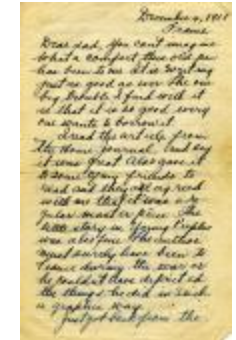 December 4, 1918
France
Dear dad, You can't imagine
what a comfort this old pen
has been to me. It is writing
just as good as ever. The one
big trouble I find with it
is that it is so good every
one wants to borrow it.
I read the article from
the Home Journal. And say
it was great. Also gave it
to some of my friends to
read and they agreed
with me that it was a re-
gular master piece. The
little story in Young Peoples
was also fine. The author
must surely have been to
France during the war or
he couldn't have depicted
the things he did in such
a graphic way.
Just got back from the